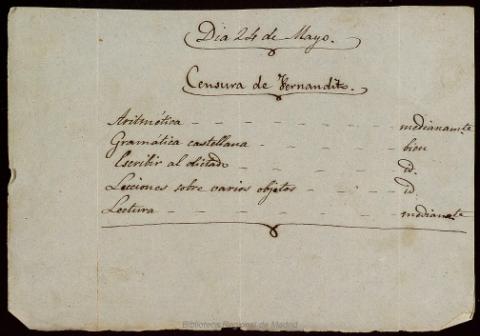 Dia 24 de Mayo.
Censura de Fernandito.
Aritmética - - - - - - - medianamte
Gramática castellana - - - - - bien
Escribir al dictado - - - - - id.
Lecciones sobre varios objetos - - - id
Lectura - - - - - - - - medianamte
Biblioteca Regional de Madrid